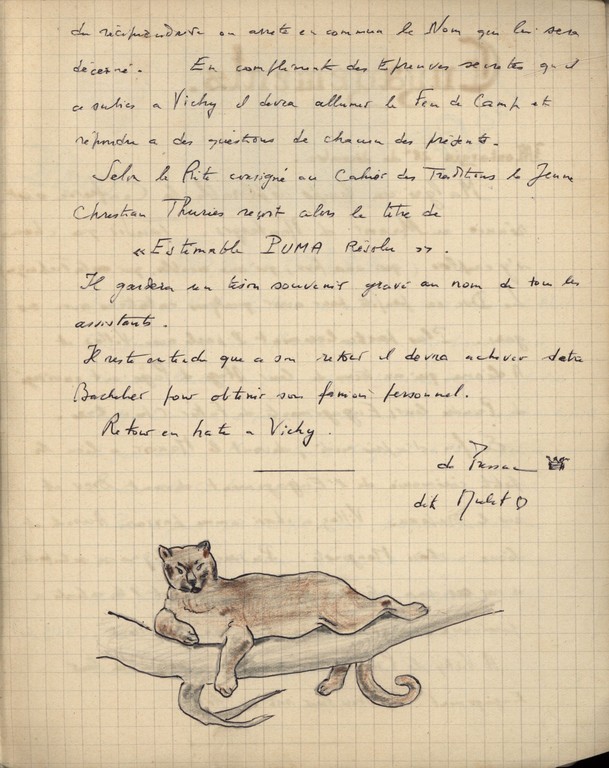 du récipiendaire on arrete en commun le Nom qui lui sera
décerné. En complément des Epreuves secretes qu'il
a subies a Vichy il devra allumer le Feu de Camp et
répondre a des questions de chacun des présents.
Selon le Rite consigné au Cahier des Traditions le Jeune
Christian Thuries reçoit alors le titre de
« Estimable PUMA Résolu ».
Il gardera un tison souvenir gravé au nom de tous les
assistants.
Il reste entendu que a son retour il devra achever detre
Bachelier pour obtenir son fanion personnel.
Retour en hate a Vichy.
de
dit Mulet